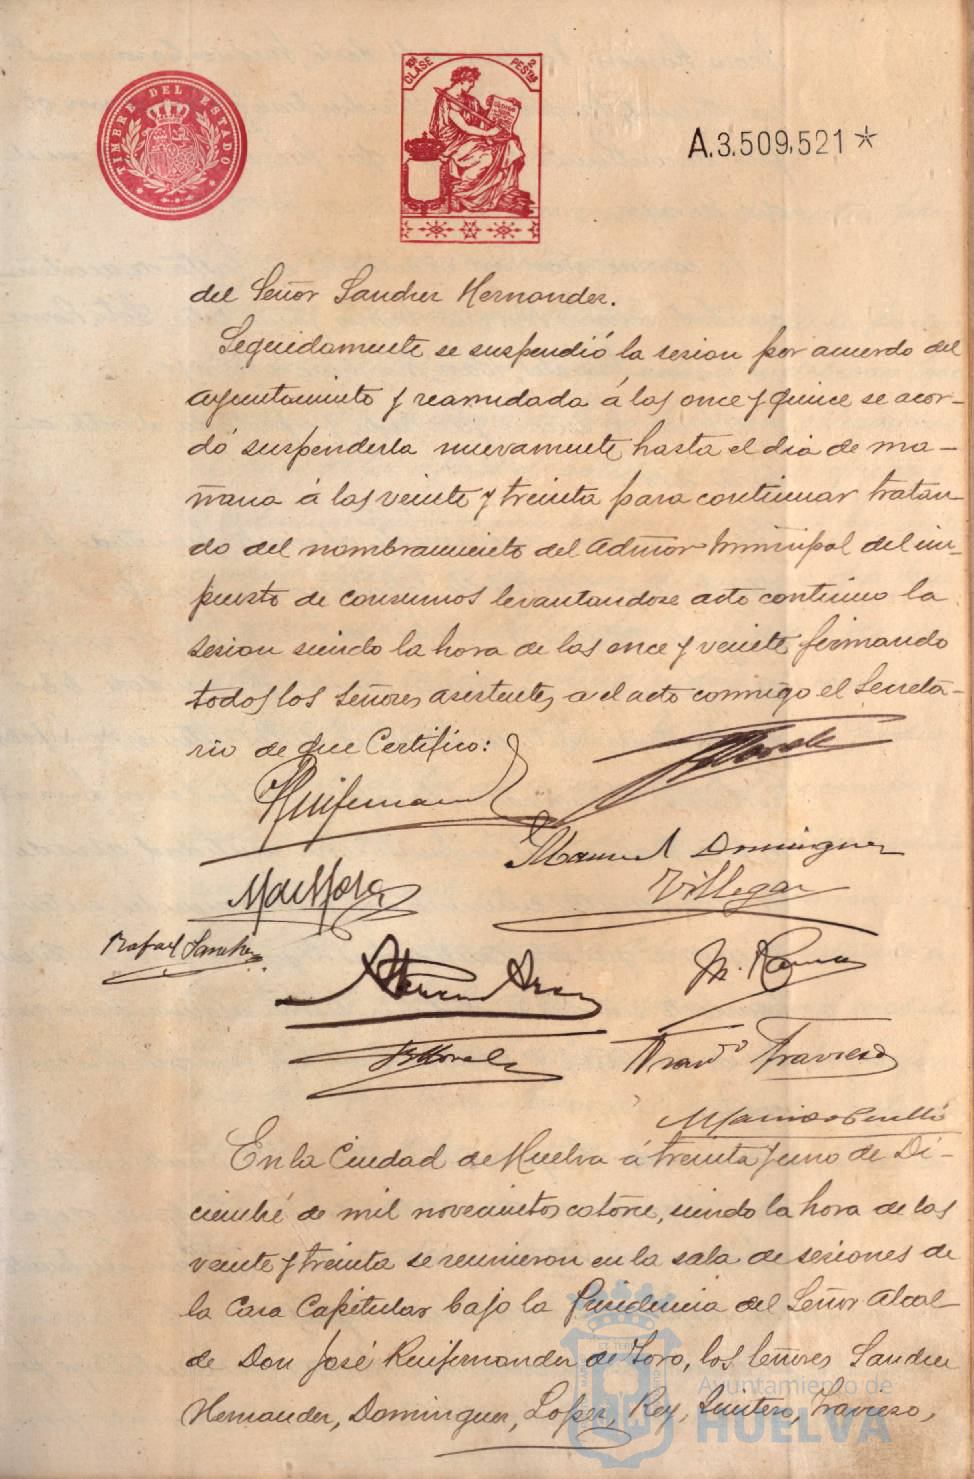 TIMBRE DEL ESTADO
10ª CLASE 2 PESTAS
A.3.509.521 *
del Señor Sanchez Hernandez.
Seguidamente se suspendió la sesion por acuerdo del
Ayuntamiento y reanudada á las once y quince se acor-
dó suspenderla nuevamente hasta el dia de ma-
ñana á las veinte y treinta para continuar tratan-
do del nombramiento del Admor Municipal del im-
puesto de consumos levantandose acto continuo la
sesion siendo la hora de las once y veinte firmando
todos los Señores asistentes a el acto conmigo el Secreta-
rio de que Certifico:
Manuel Dominguez
Villegas
Rafael Sanchez
Travieso
En la Ciudad de Huelva á treinta y uno de Di-
ciembre de mil novecientos catorce, siendo la hora de las
veinte y treinta se reunieron en la sala de sesiones de
la Casa Capitular bajo la Presidencia del Señor Alcal-
de Don José Ruifernandez de Toro, los Señores Sanchez
Hernandez, Dominguez, Lopez, Rey, Quintero, Travieso,
Ayuntamiento de
HUELVA